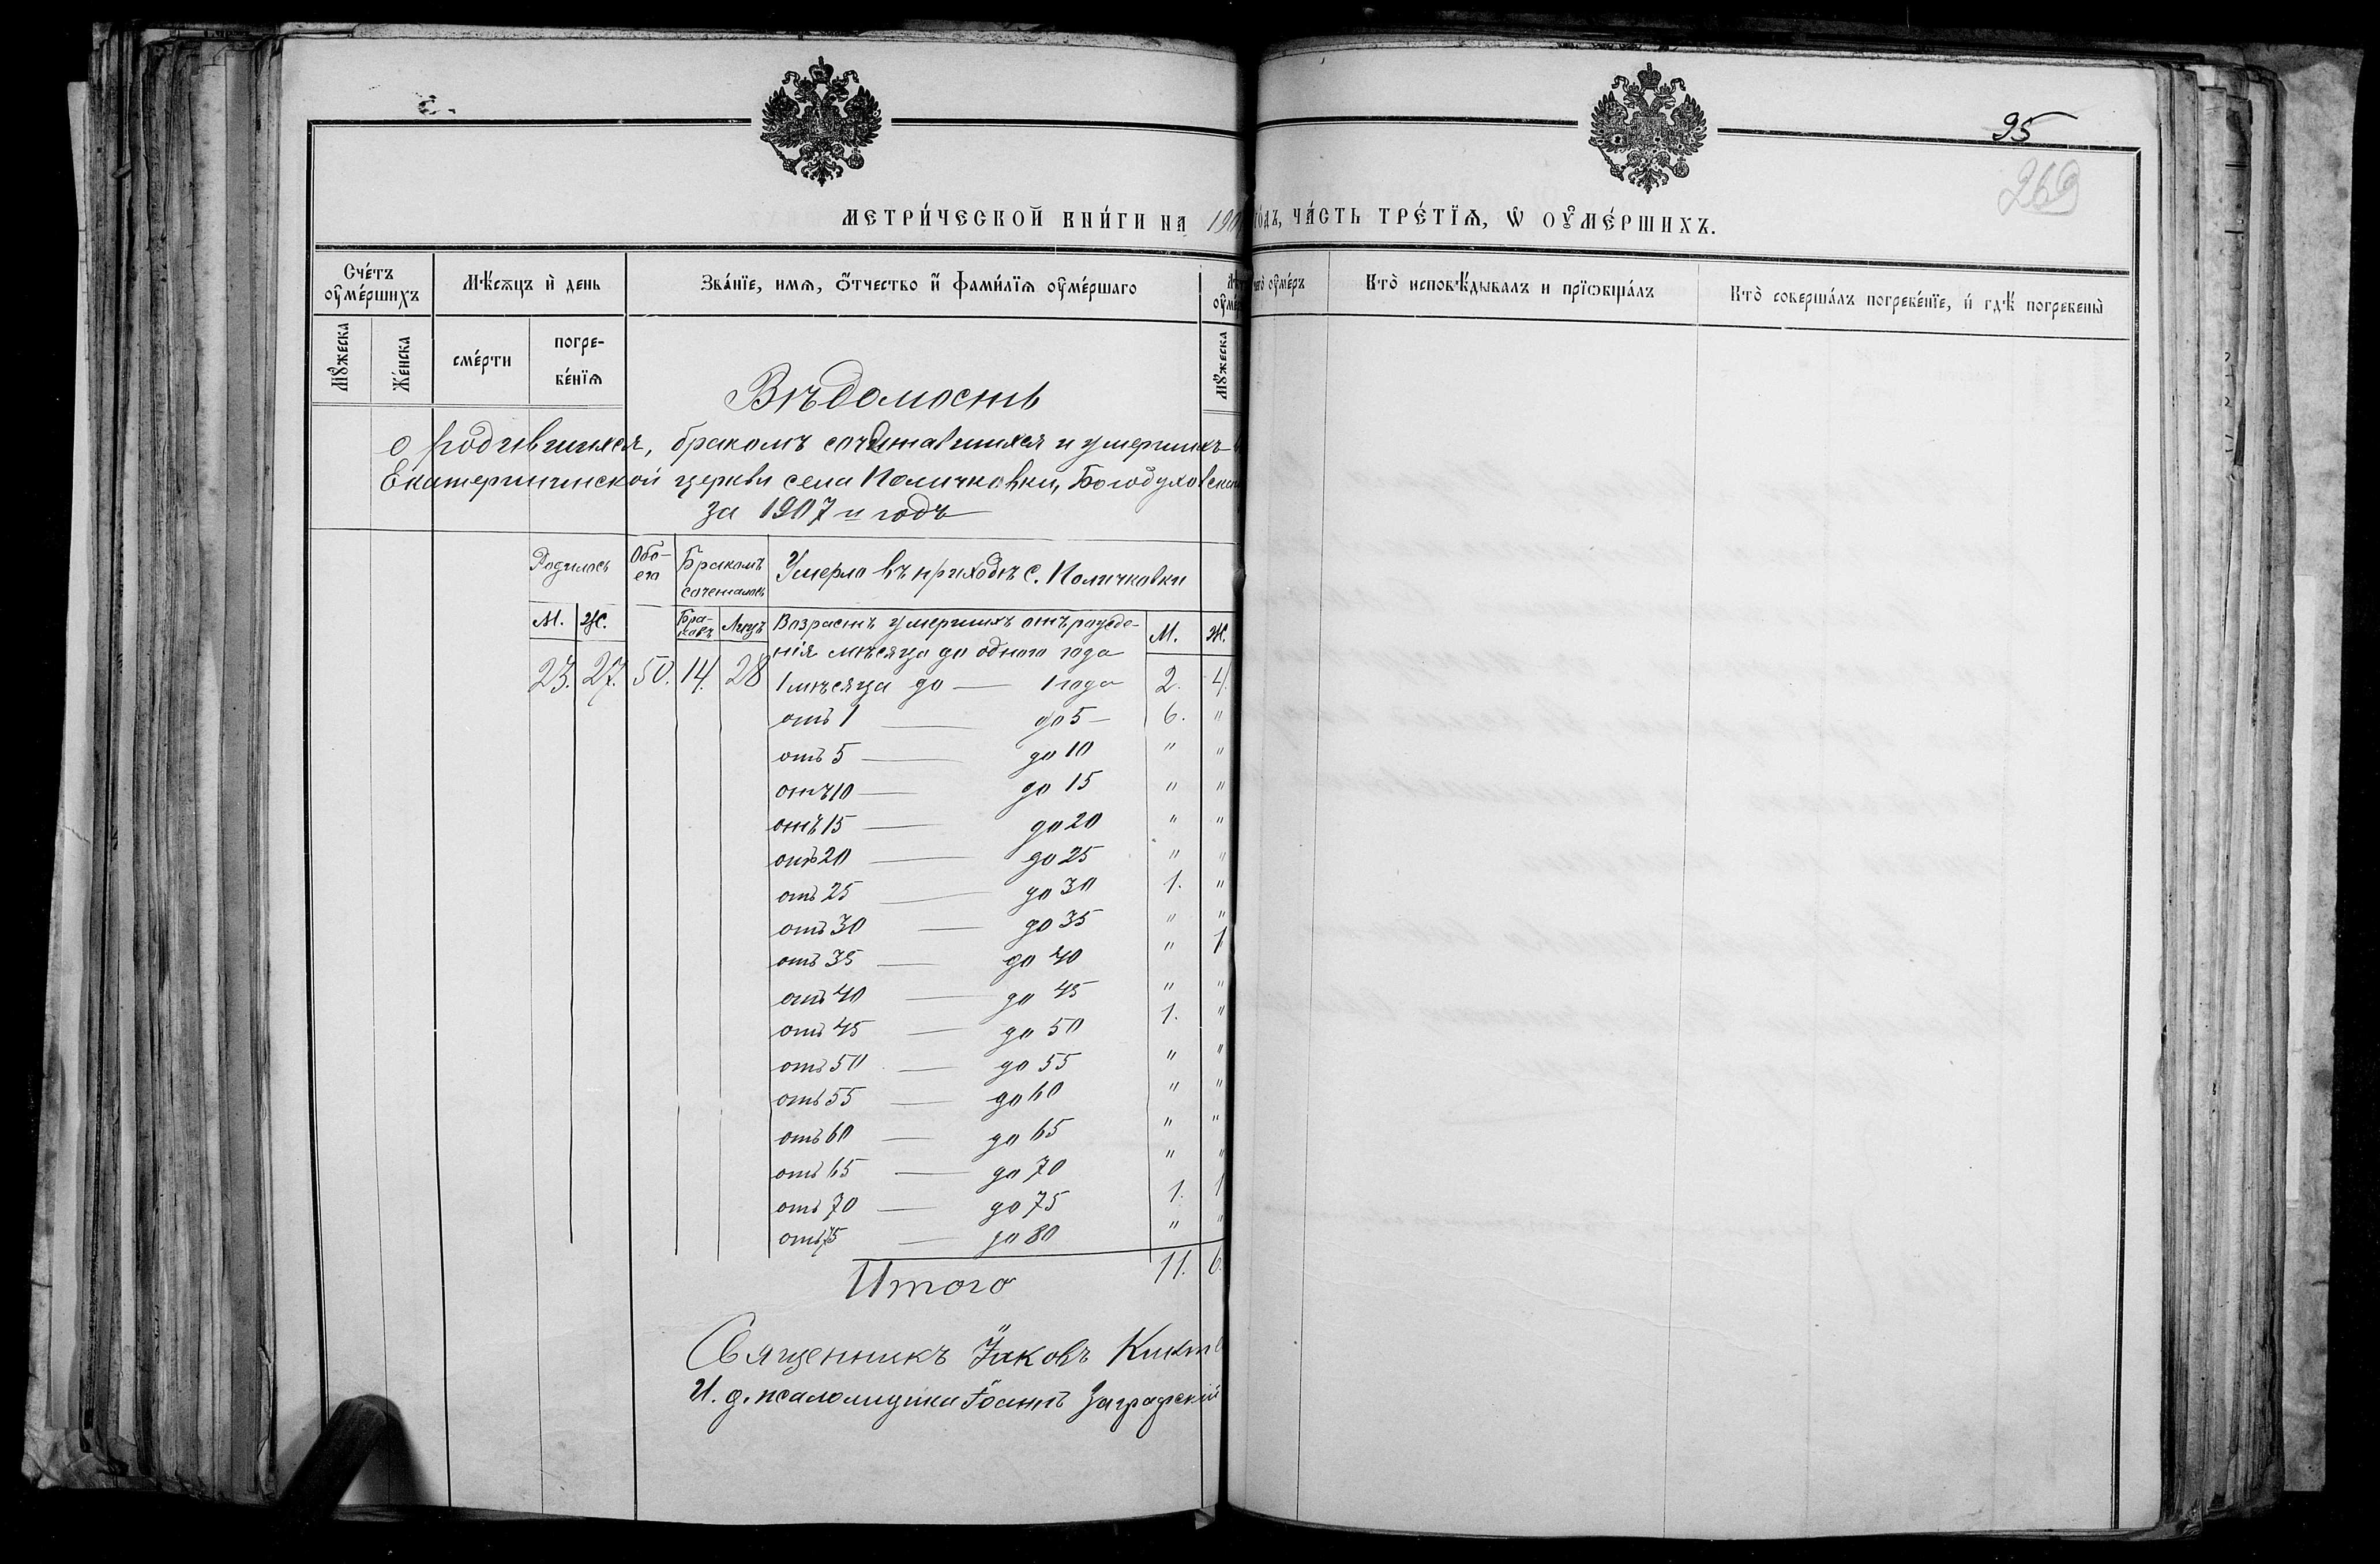 95
269
МЕТРИ́ЧЕСКОЙ КНИ́ГИ НА 190 ГО́ДЪ, ЧА́СТЬ ТРЕ́ТЇѦ, Ѡ҆ ОУ҆МЕ́РШИХЪ.
Сче́тъ оу҆ме́ршихъ
Мѣ́сѧцъ и҆ де́нь
Зва́нїе, имѧ, ѻ҆́тчество и҆ фами́лїѧ оу҆ме́ршаго
оу҆ме́ръ
Кто̀ исповѣ́дывалъ и прїѡбща́лъ
Кто̀ соверша́лъ погребе́нїе, и҆ гдѣ̀ погребены̀
Мꙋжеска
Же́нска
сме́рти
погре-
бе́нїѧ
Мꙋжеска
Вѣдомость
о родившихся, бракомъ сочетавшихся и умершихъ
Екатерининской церкви села Поличковки, Богодуховскаго
за 1907 й годъ
Родилось
Обо-
его
Бракомъ
сочеталось
Умерло въ приходѣ с. Поличковки
М. Ж.
Бра-
ковъ
Лицъ
Возрастъ умершихъ отъ рожде-
нія мѣсяца до одного года
М. Ж.
23. 27. 50. 14. 28 1 мѣсяца до — 1 года 2. 4.
отъ 1 — до 5 — 6. "
отъ 5 — до 10 " "
отъ 10 — до 15 " "
отъ 15 — до 20 " "
отъ 20 — до 25 " "
отъ 25 — до 30 1. "
отъ 30 — до 35 " "
отъ 35 — до 40 " 1
отъ 40 — до 45 " "
отъ 45 — до 50 1. "
отъ 50 — до 55 " "
отъ 55 — до 60 " "
отъ 60 — до 65 " "
отъ 65 — до 70 " "
отъ 70 — до 75 1. 1
отъ 75 — до 80 " "
Итого 11. 6.
Священникъ Іаковъ
И. д. псаломщика Іоаннъ Заграфскій